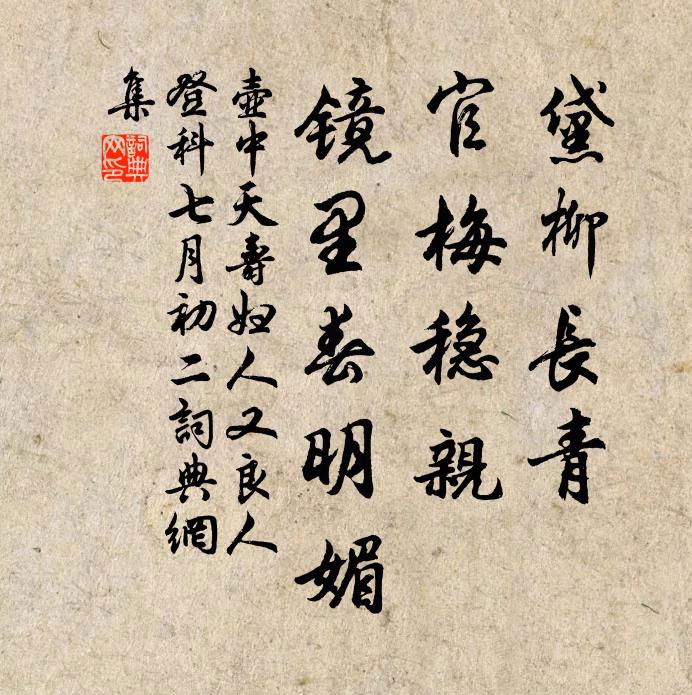 黛柳長青
官梅穩親
鏡里春明媚
壺中天壽婦人又良人
登科七月初二詞典網
集
詞典
网印